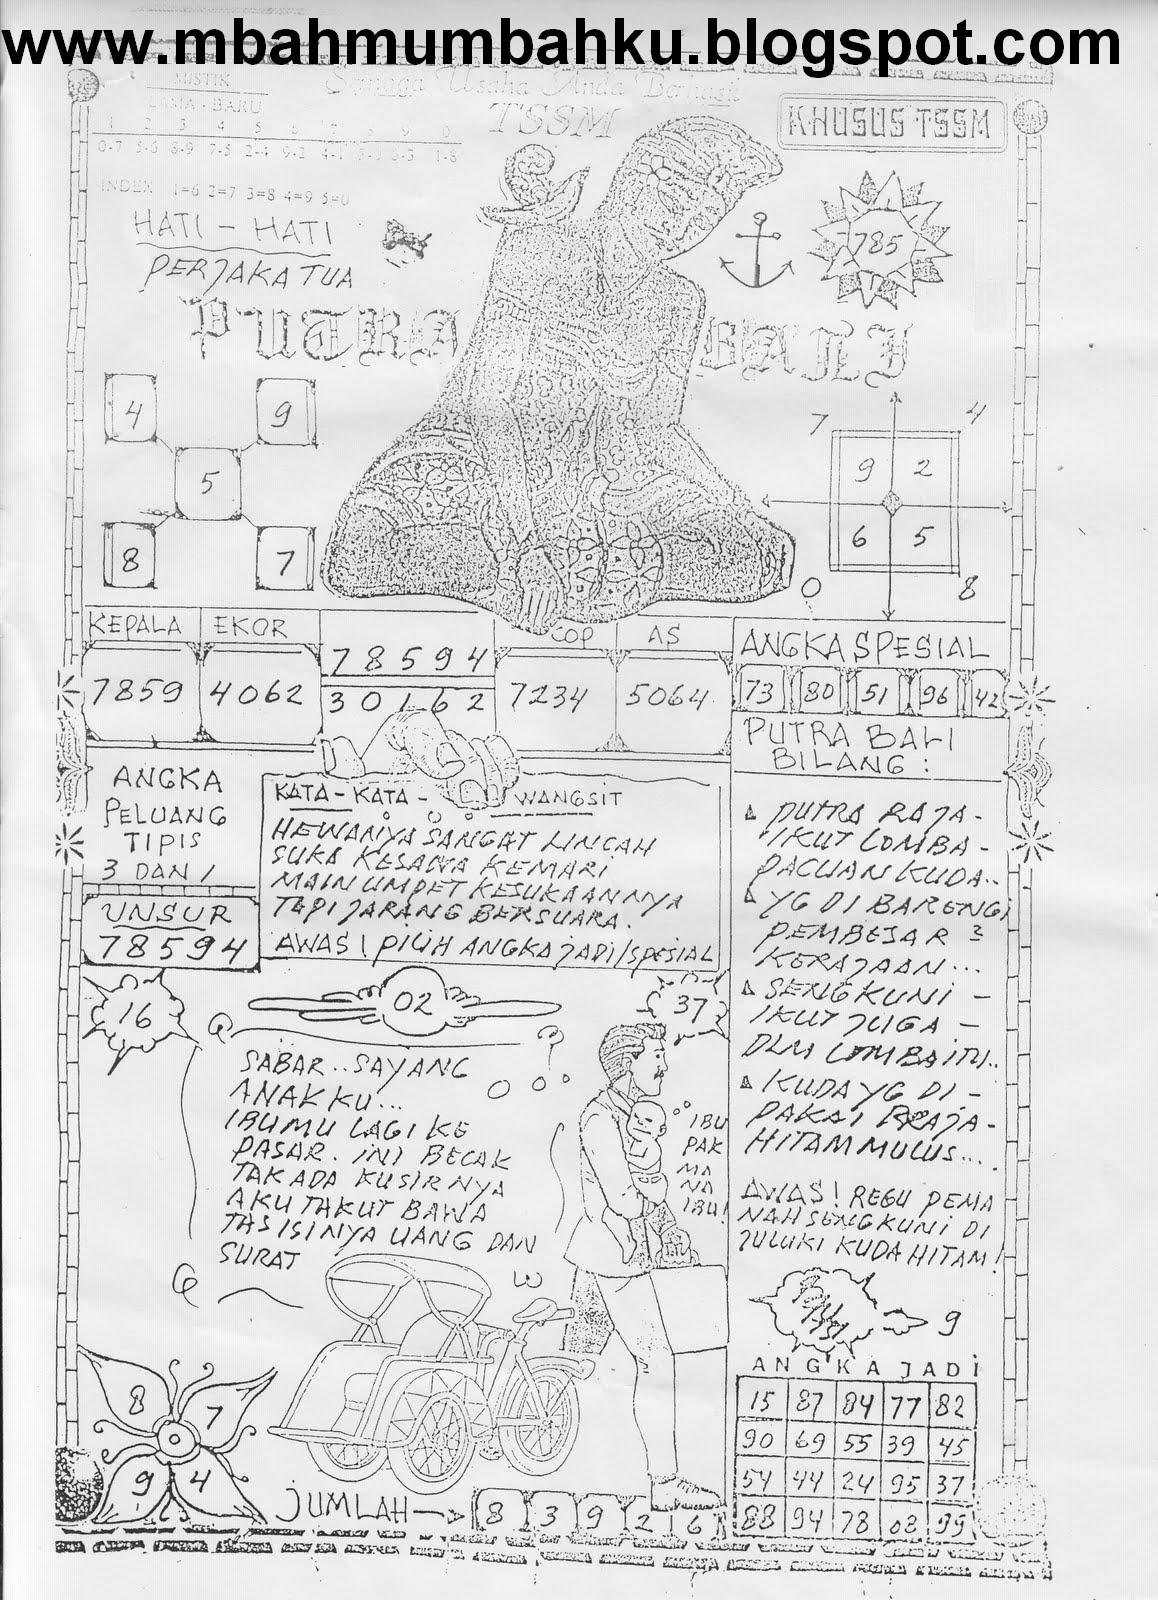 www.mbahmumbahku.blogspot.com
MISTIK
LAMA - BARU
1 2 3 4 5 6 7 8 9 0
0-7 5-6 8-9 7-5 2-4 9-2 4-1 6-3 1-8
INDEX 1=6 2=7 3=8 4=9 5=0
Semoga Usaha Anda Berhasil
TSSM
KHUSUS TSSM
HATI - HATI
PERJAKA TUA
PUTRA BALI
785
4 9
5
8 7
7 4
9 2
6 5
0 8
KEPALA EKOR
7859 4062
78594
30162
COP AS
7234 5064
ANGKA SPESIAL
73 80 51 96 42
PUTRA BALI
BILANG :
ANGKA
PELUANG
TIPIS
3 DAN 1
UNSUR
78594
KATA - KATA - WANGSIT
HEWANNYA SANGAT LINCAH
SUKA KESANA KEMARI
MAIN UMPET KESUKAANNYA
TAPI JARANG BERSUARA.
AWAS! PILIH ANGKA JADI/SPESIAL
PUTRA RAJA -
IKUT LOMBA -
PACUAN KUDA..
YG DI BARENGI
PEMBESAR 2
KERAJAAN...
SENGKUNI -
IKUT JUGA -
DLM LOMBA ITU..
KUDA YG DI -
PAKAI RAJA -
HITAM MULUS....
AWAS! REGU PEMA
NAH SENGKUNI DI
JULUKI KUDA HITAM!
16
02
37
SABAR.. SAYANG
ANAK KU...
IBUMU LAGI KE
PASAR. INI BECAK
TAK ADA KUSIRNYA
AKU TAKUT BAWA
TAS ISINYA UANG DAN
SURAT
IBU
PAK
MA
NA
IBU!
9
ANGKA JADI
15 87 84 77 82
90 69 55 39 45
54 44 24 95 37
88 94 78 08 99
8 7
9 4
JUMLAH
8 3 9 2 6